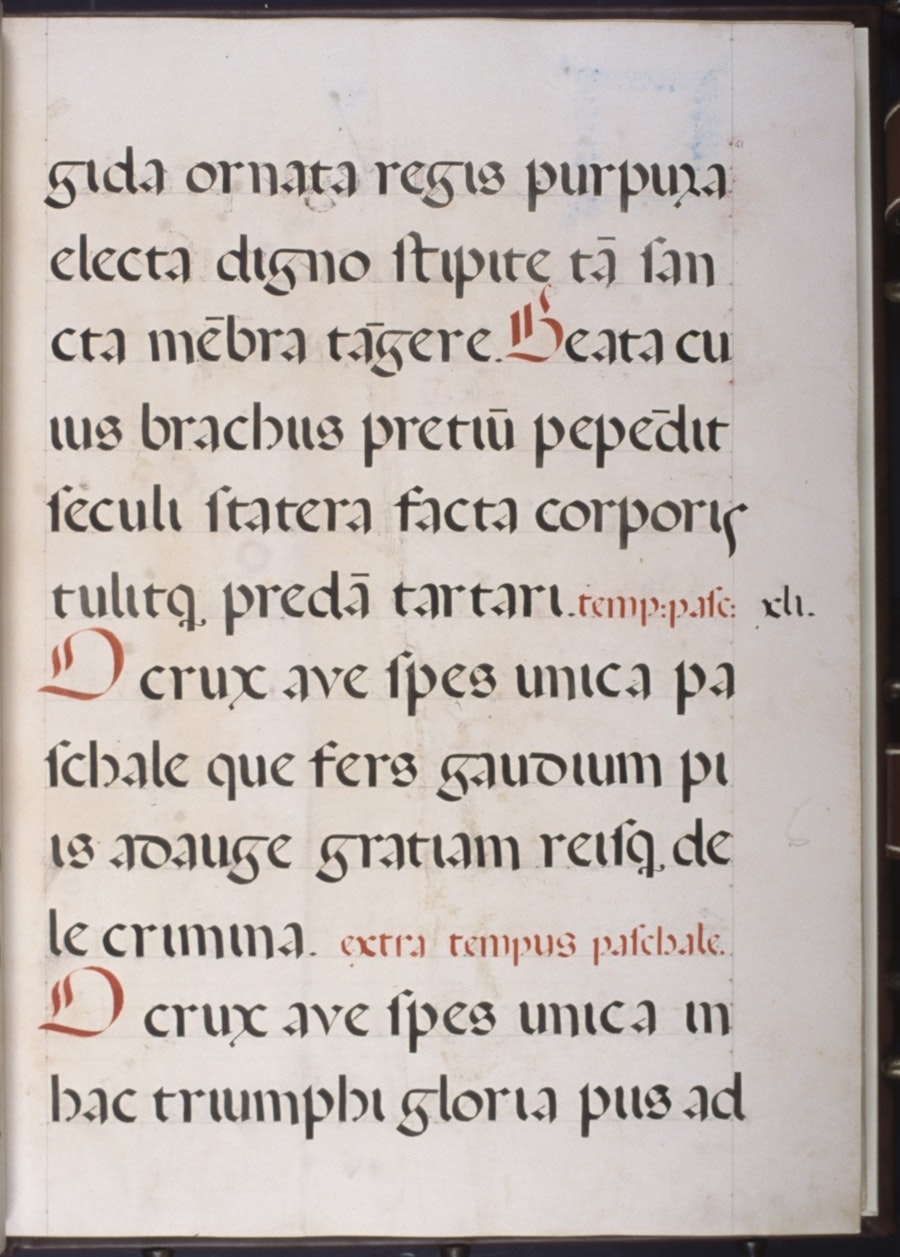 gida ornata regis purpura
electa digno ſtipite tā ſan
cta mēbra tāgere. Beata cu
ius brachiis pretiū pepēdit
ſeculi ſtatera facta corporis
tulitq, predā tartari. temp: paſc: xli.
O crux ave ſpes unica pa
ſchale que fers gaudium pi
is adauge gratiam reiſq, de
le crimina. extra tempus paſchale.
O crux ave ſpes unica in
hac triumphi gloria piis ad